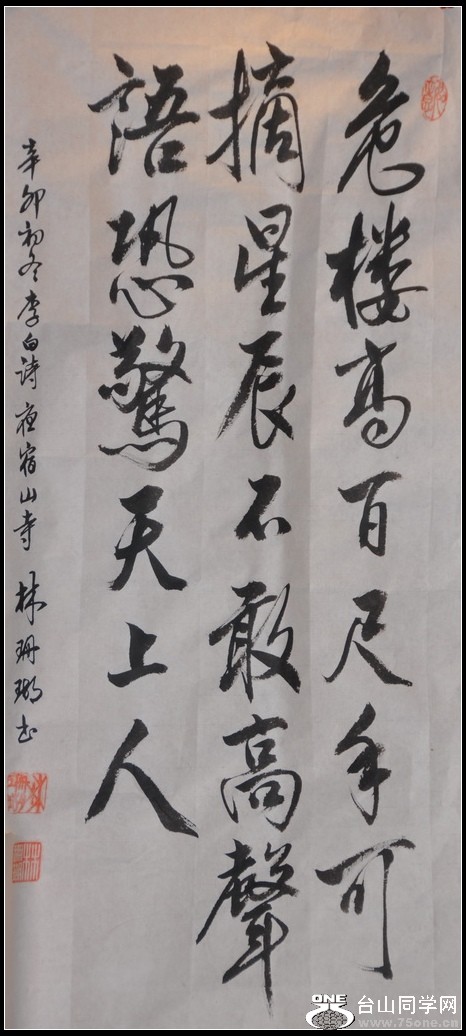 危楼高百尺手可
摘星辰不敢高聲
語恐驚天上人
辛卯初冬李白诗夜宿山寺 林珊瑚书
ONE 台山同学网
www.75one.cn